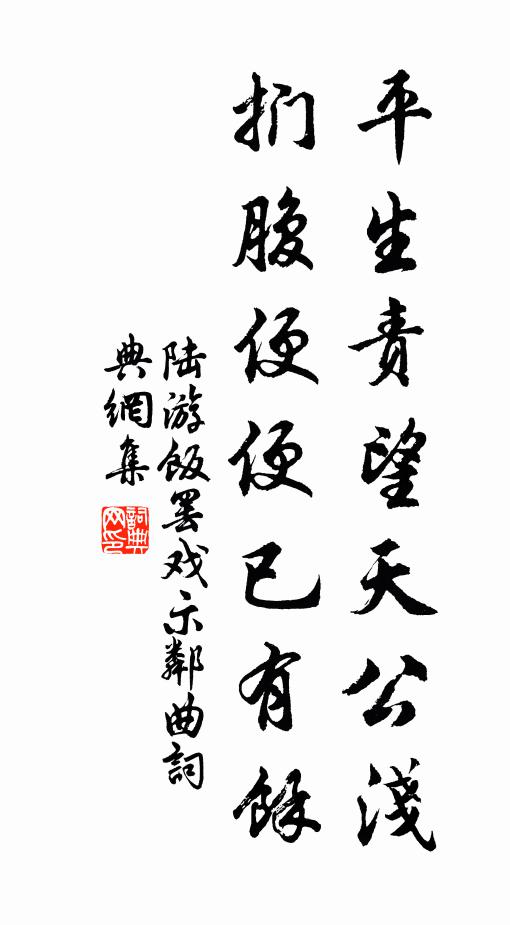 平生責望天公淺
捫腹便便已有餘
陸游飯罷戏示鄰曲詞
典網集
詞典
网印